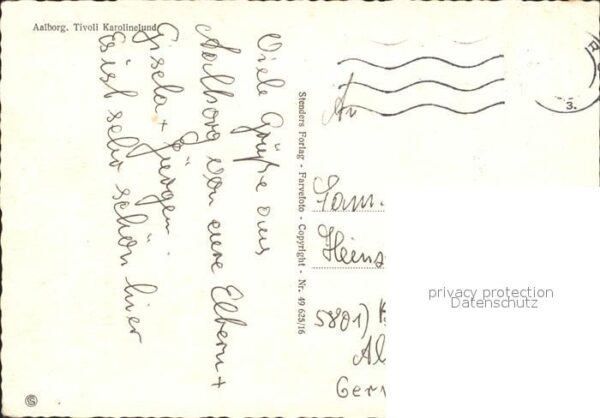 Aalborg. Tivoli Karolinelund
Viele Grüße aus
Aalborg von eure Eltern +
Gisela + Jürgen.
Es ist sehr schön hier
Stenders Forlag - Farvefoto - Copyright - Nr. 49 625/16
3.
An
Fam.
Heins
5801)
Al
Ger
privacy protection
Datenschutz